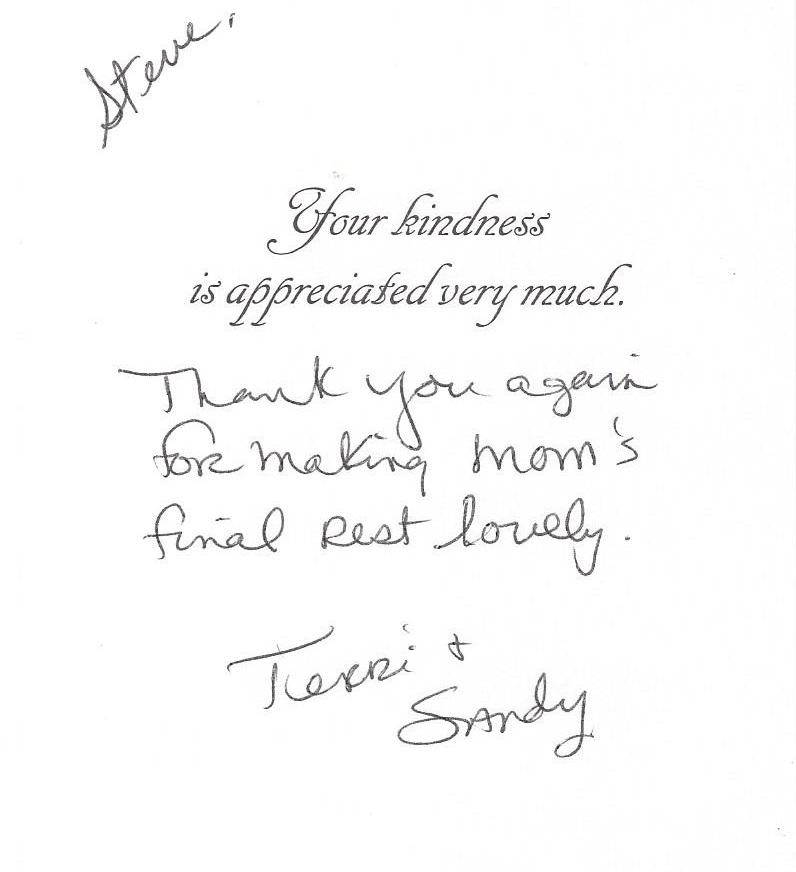 Steve,
Your kindness
is appreciated very much.
Thank you again
for making mom's
final rest lovely.
Terri +
Sandy